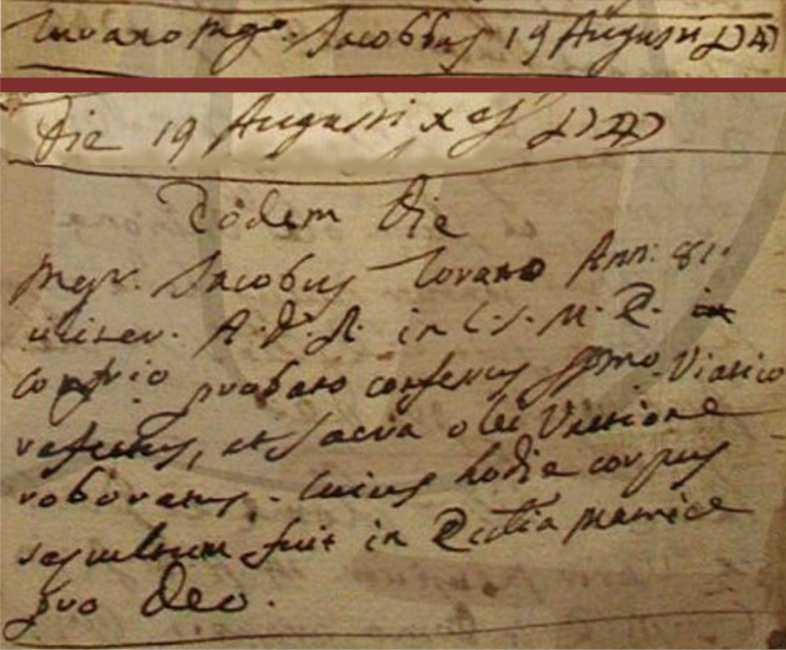 Lovaro Mgr. Jacobus 19 Augusti
Die 19 Augusti
Eodem Die
Mgr. Jacobus Lovaro Ann: 81.
miser. A. D. R. in C. S. M. E. in
probato confessus Viatico
refectus, et Sacra olei Unctione
roboratus. Cuius hodie corpus
sepultum fuit in Ecclia matrice
pro Deo.